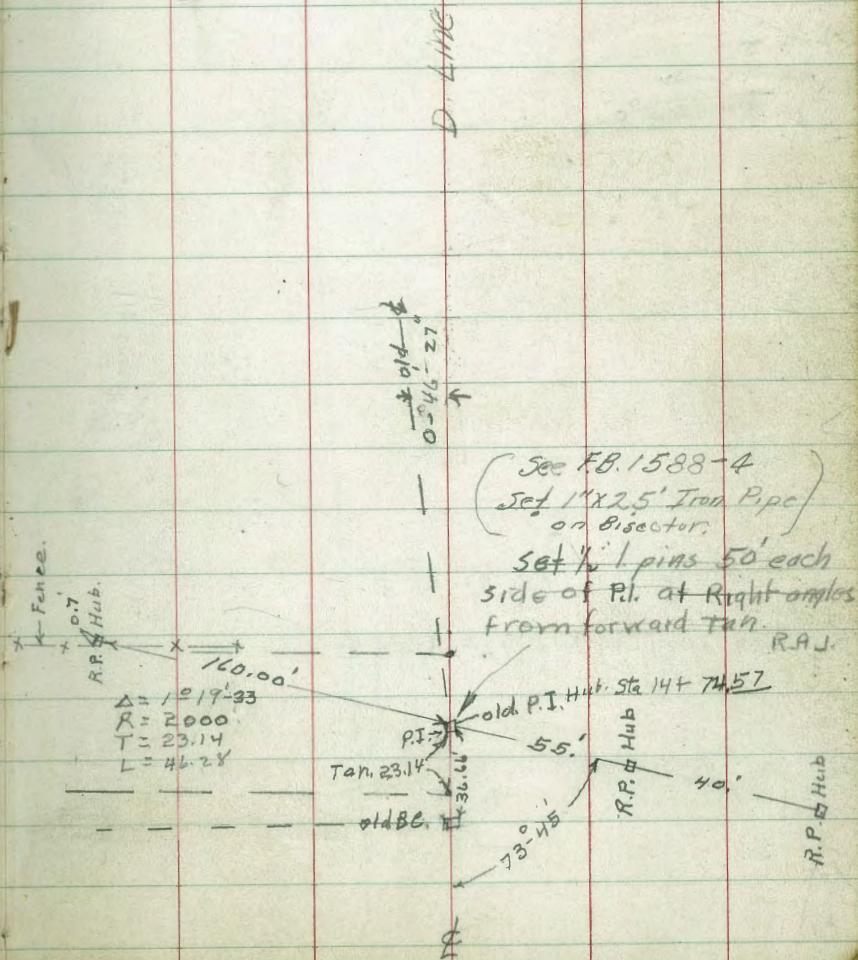 D. Line
old
0°-46'-27"
(See F.B. 1588-4
Set 1"x2.5' Iron Pipe
on Bisector.)
Set ½ 1. pins 50' each
side of P.I. at Right angles
From forward Tan.
R.A.J.
Fence.
0.7'
R.P. Hub.
160.00'
Δ = 1°19'-33
R = 2000
T = 23.14
L = 46.28
old P.I. Hub. Sta 14+74.57
P.I.
55.'
R.P. Hub
40.'
R.P. Hub
Tan. 23.14
36.66'
old B.C.
73°-45'